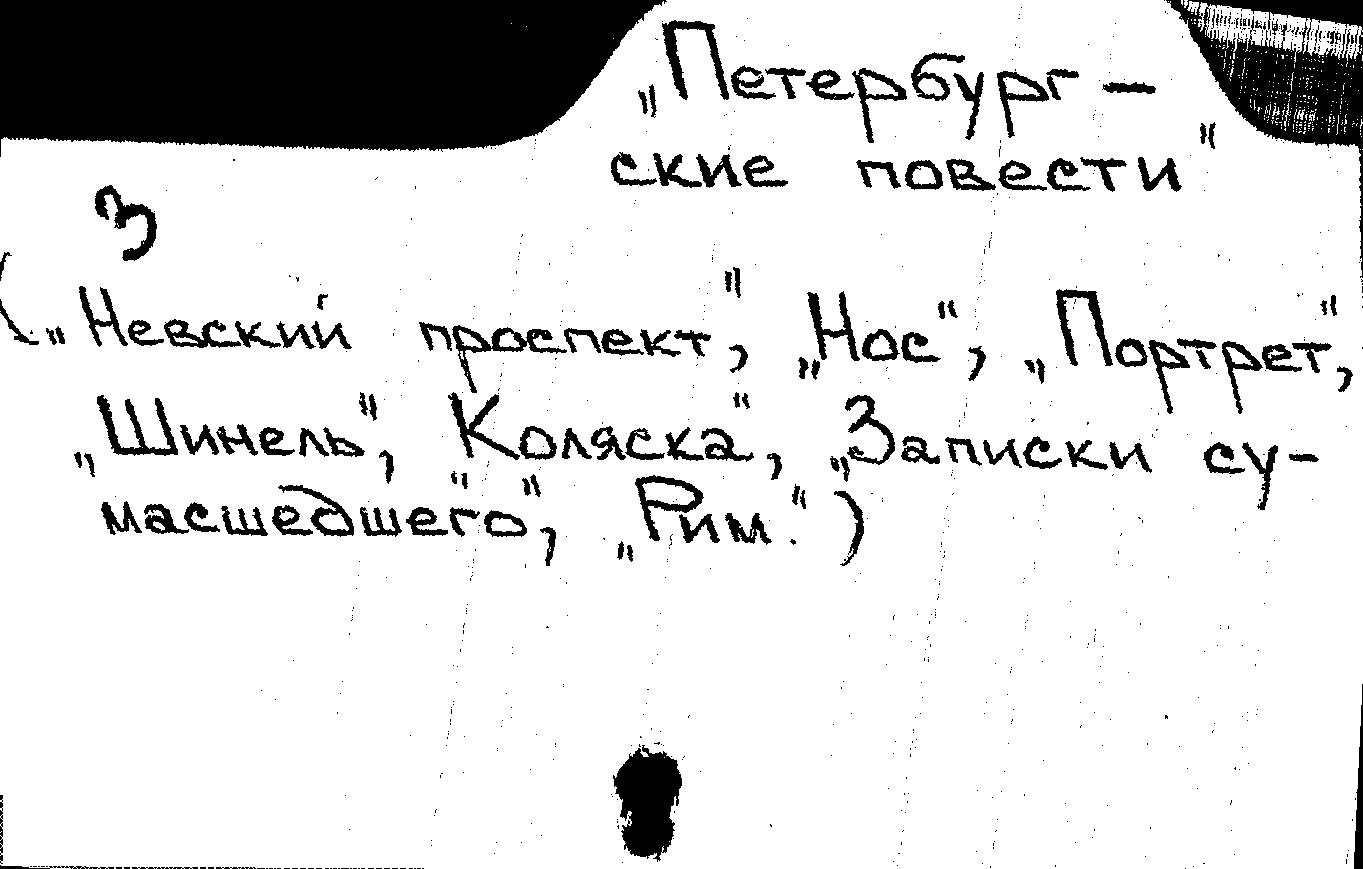 „Петербург-
ские повести"
3
(„Невский проспект", „Нос", „Портрет",
„Шинель", „Коляска", „Записки су-
масшедшего", „Рим.")